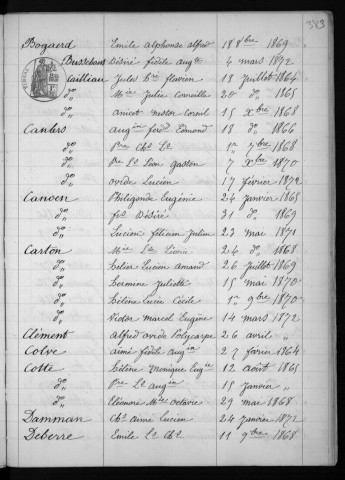 383
Bogaerd Emile alphonse alfred 18 8bre 1869
Busschaert Désiré fidèle augte 4 mars 1872
Cailliau Jules hri flavien 18 juillet 1864
do Mie Julie Corneille 20 do 1865
do amicet nestor Cornil 15 Xbre 1868
Canlers augin ferd Edmond 18 do 1866
do Pre Chs Ls 1er 7bre 1868
do Pre Ls Léon gaston 7 Xbre 1870
do ovide Lucien 17 février 1872
Canoen Philogone Eugénie 24 janvier 1865
do fois Désiré 31 do 1869
do Lucien félicien Julien 23 mai 1871
Carton Mie Lse 24 do 1868
do Lucien amand 26 juillet 1869
do Hermine juliette 15 mai 1870
do Hélène Lucie Cécile 1er 9bre 1870
do Victor marcel Eugène 14 mars 1872
Clément Alfred ovide Polycarpe 26 avril "
Colve aimé fidèle augin 27 février 1864
Cotte Hélène monique Eugie 12 août 1865
do Pre Ls augin 15 janvier "
do Eléonore Mie octavie 29 mai 1868
Damman Chs aimé Lucien 24 janvier 1872
Deberre Emile Ls Chs 11 9bre 1868